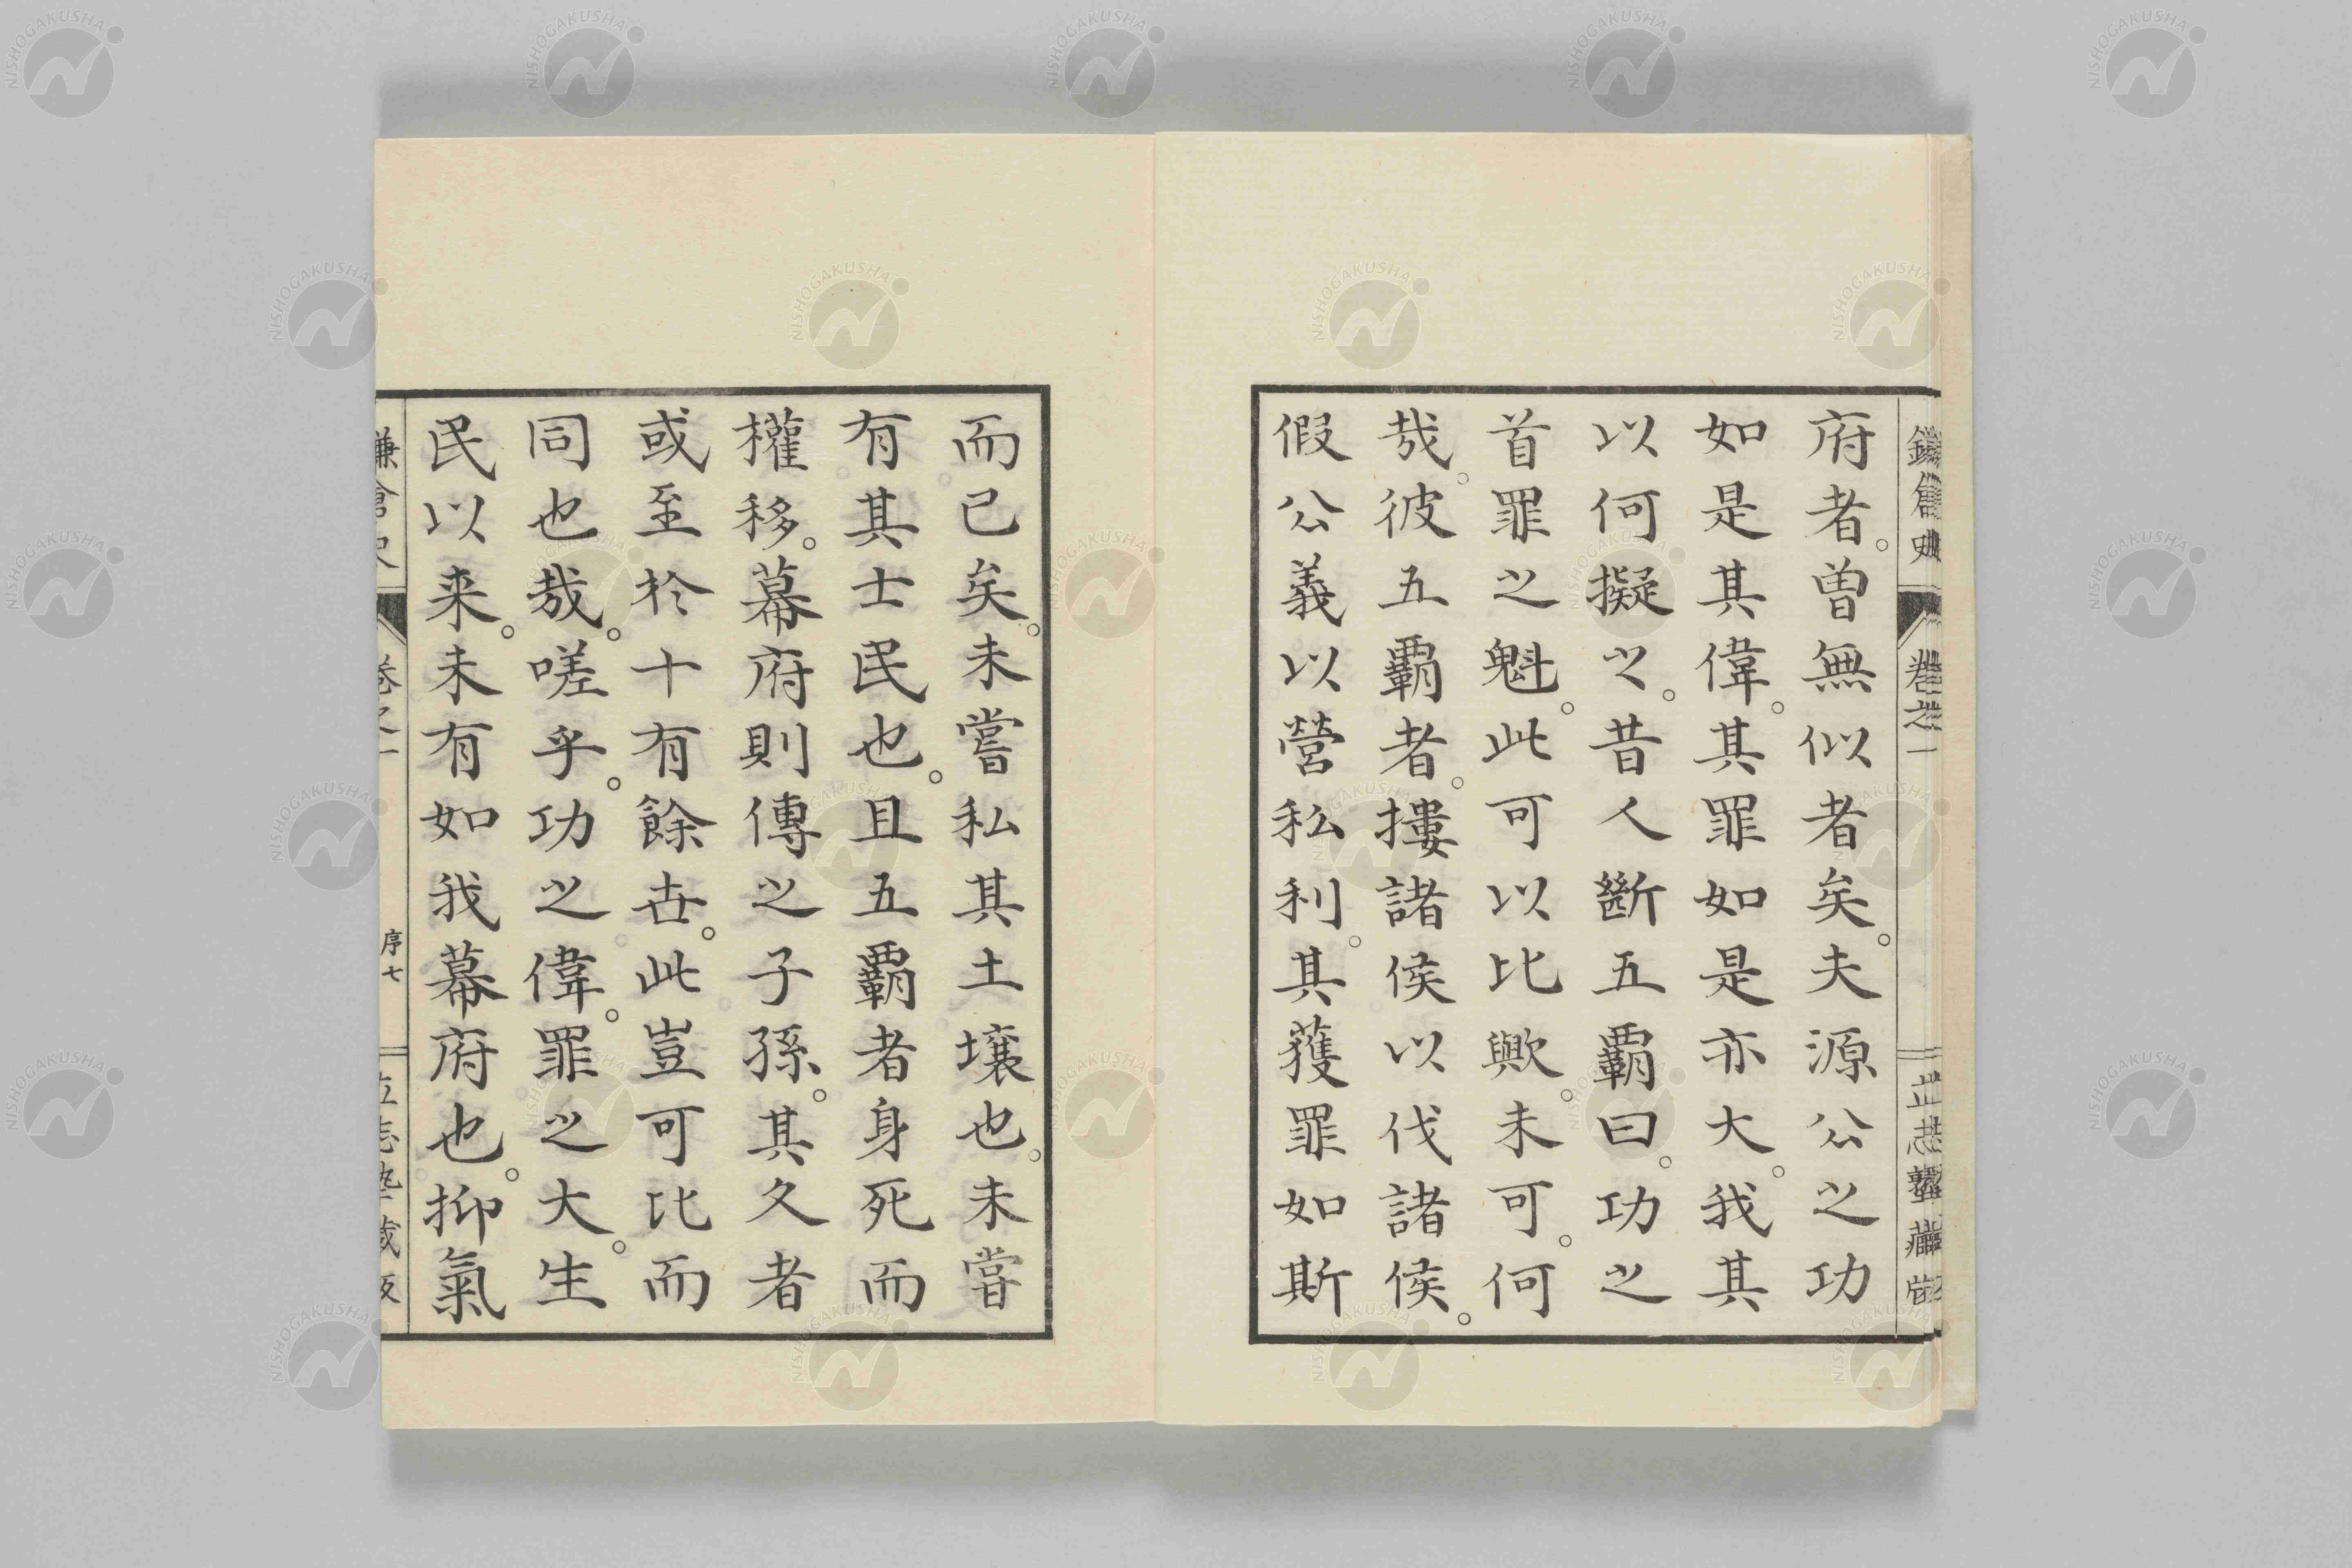 府者。曽無似者矣。夫源公之功
如是其偉。其罪如是亦大。我其
以何擬之。昔人斷五覇曰。功之
首罪之魁。此可以比歟。未可。何
哉。彼五覇者。摟諸侯以伐諸侯。
假公義以營私利。其獲罪如斯
而已矣。未嘗私其土壤也。未嘗
有其士民也。且五覇者身死而
權移。幕府則傳之子孫。其久者
或至於十有餘世。此豈可比而
同也哉。嗟乎。功之偉。罪之大。生
民以来。未有如我幕府也。抑氣
鎌倉史
卷之一
序七
立志塾藏版
NISHOGAKUSHA